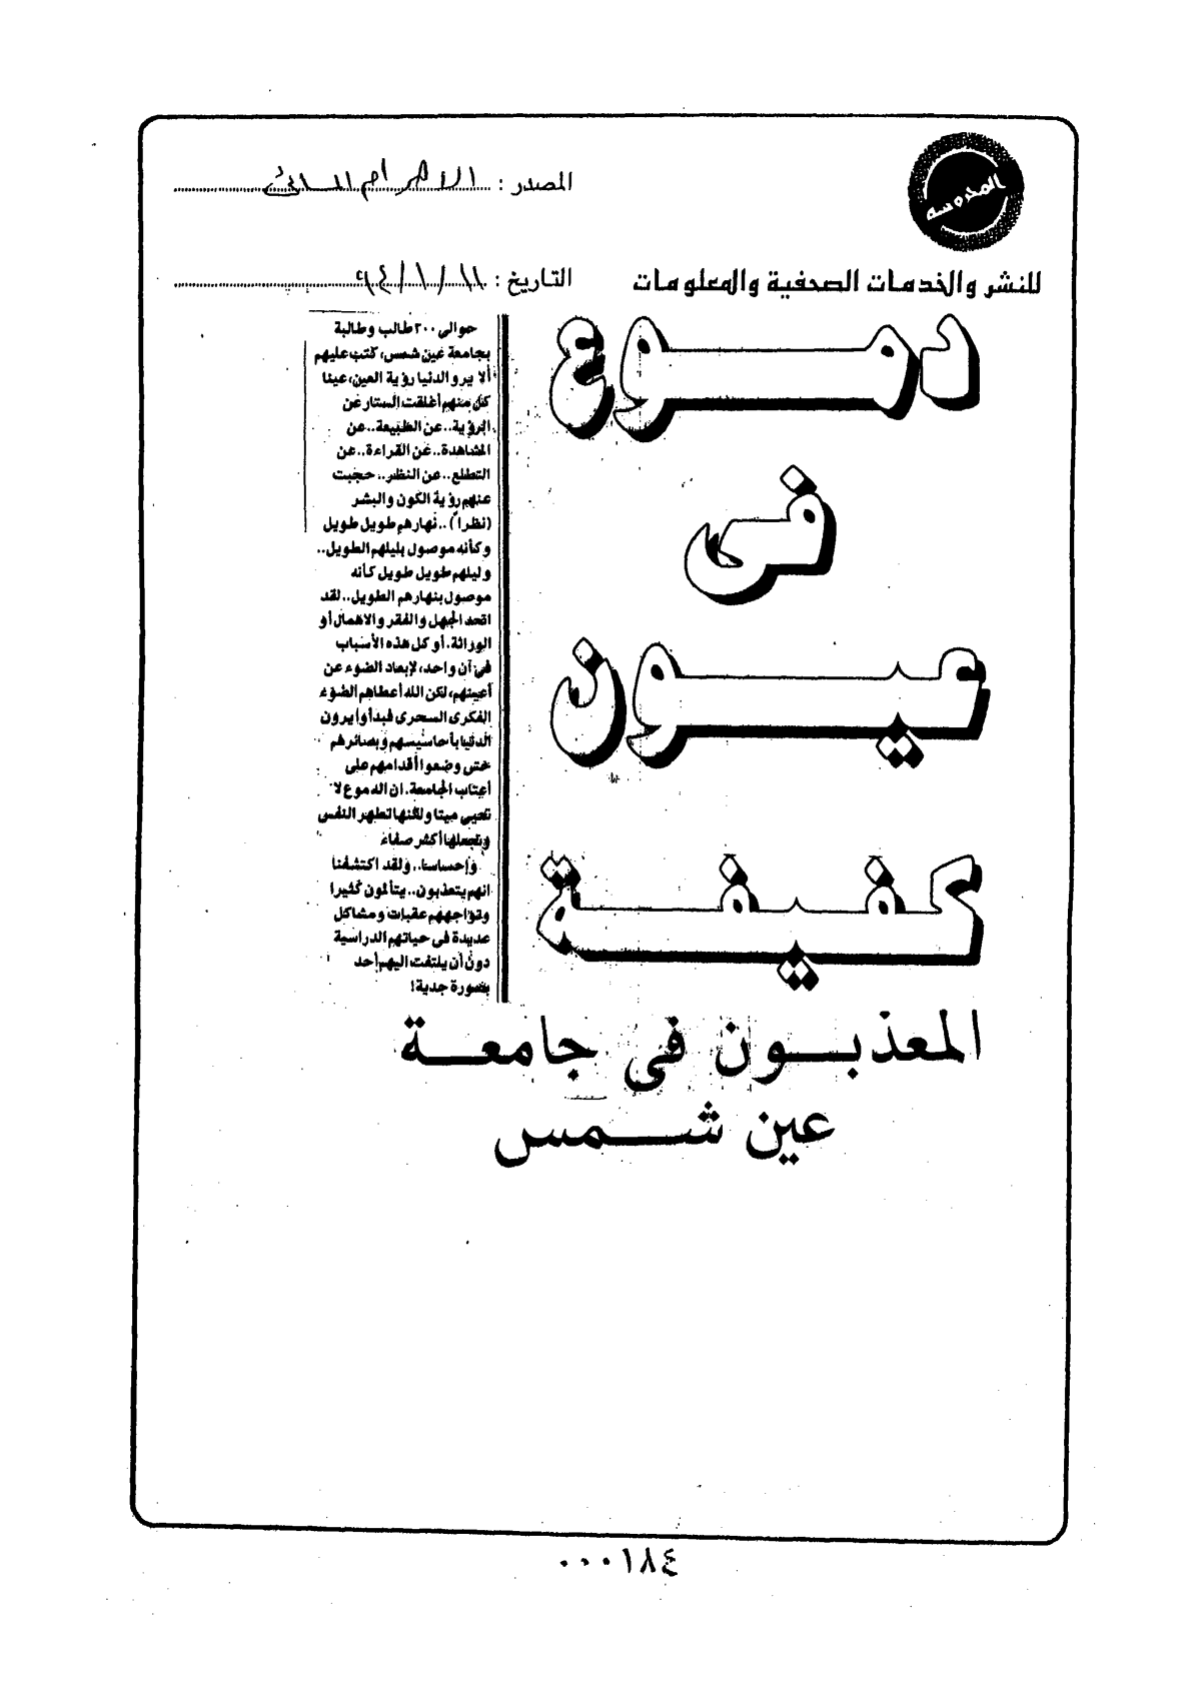 المحروسة
المصدر : الاهرام المسائى
للنشر والخدمات الصحفية والمعلومات
التاريخ : ١١ / ١ / ٩٤
دمـوع
فى
عيـون
كفيفـة
المعذبـون فى جامعـة
عين شـمس
حوالى ٢٠٠ طالب وطالبة
بجامعة عين شمس، كتب عليهم
ألا يروا الدنيا رؤية العين، عينا
كل منهم أغلقت الستار عن
الرؤية.. عن الطبيعة.. عن
المشاهدة.. عن القراءة.. عن
التطلع.. عن النظر.. حجبت
عنهم رؤية الكون والبشر
(نظراً).. نهارهم طويل طويل
وكأنه موصول بليلهم الطويل..
وليلهم طويل طويل كأنه
موصول بنهارهم الطويل.. لقد
اتحد الجهل والفقر والاهمال أو
الوراثة. أو كل هذه الأسباب
في آن واحد، لإبعاد الضوء عن
أعينهم، لكن الله أعطاهم الضوء
الفكرى السحرى فبدأوا يرون
الدنيا بأحاسيسهم وبصائرهم
حتى وضعوا أقدامهم على
أعتاب الجامعة. ان الدموع لا
تحيى ميتا ولكنها تطهر النفس
وتجعلها أكثر صفاء
وإحساسا.. ولقد اكتشفنا
انهم يتعذبون.. يتألمون كثيرا
وتواجههم عقبات ومشاكل
عديدة فى حياتهم الدراسية
دون أن يلتفت اليهم أحد
بصورة جدية!
٠٠٠١٨٤